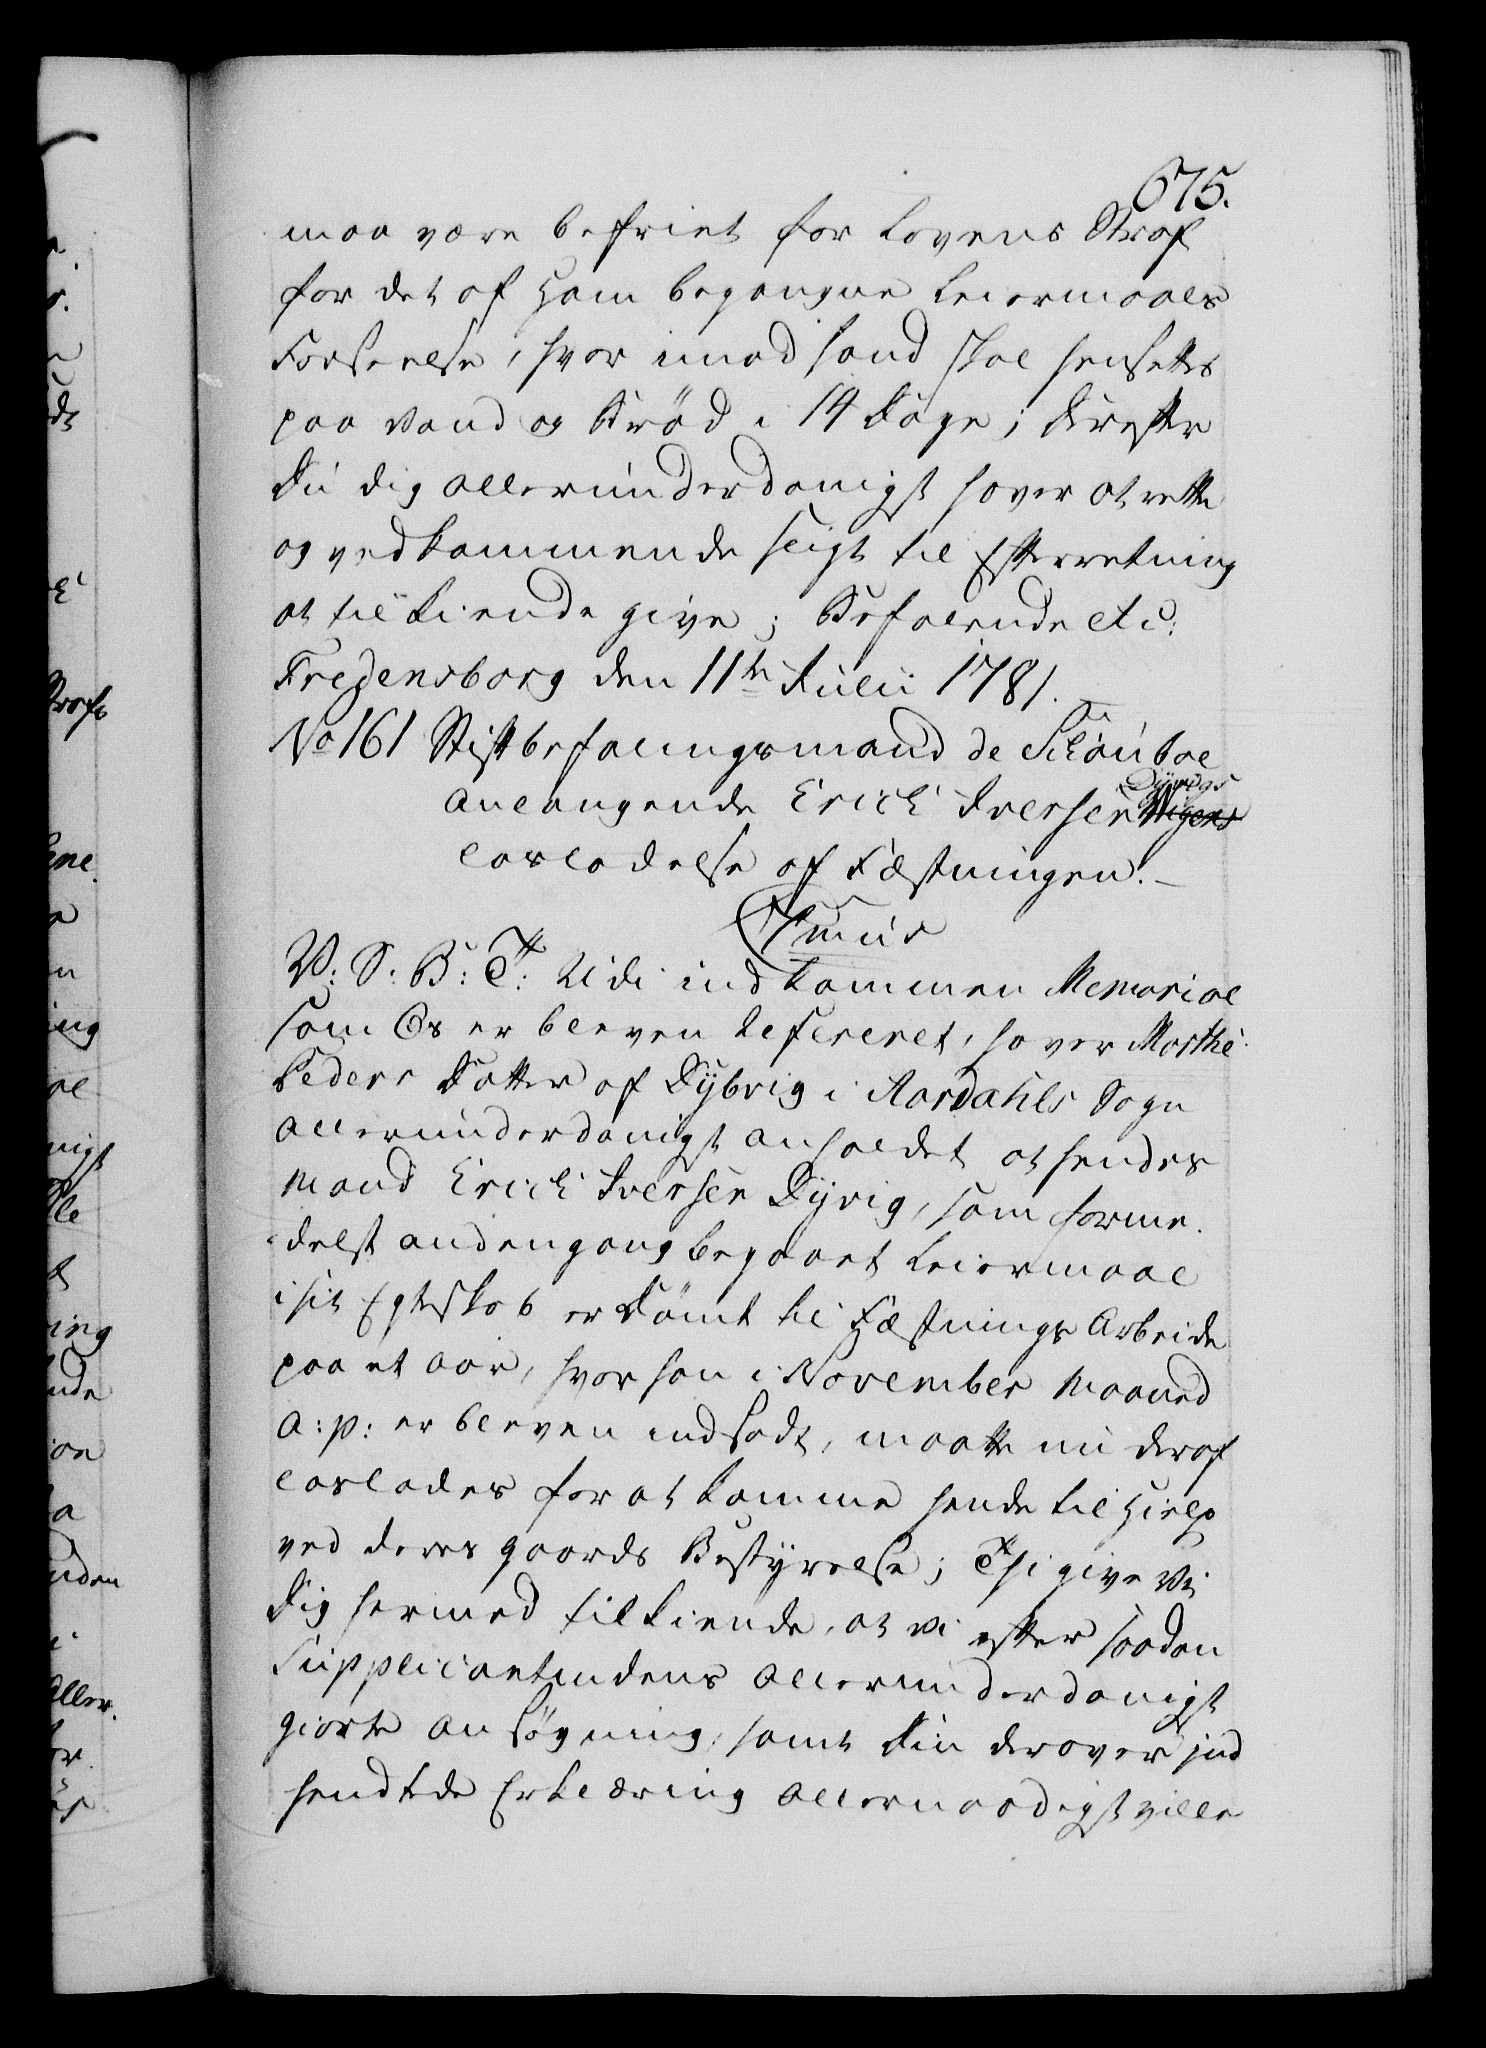 675.
maa være befriet for Lovens Straf
for det af ham begangne Leiermaals
Forseelse, hvor imod hand skal hensettes
paa Vand og Brød i 14 Dage; Derefter
Du dig allerunderdanigst haver at rette
og vedkommende sligt til Efterretning
at tilkiende give; Befalende etc:
Fredensborg den 11te Julii 1781.
No 161 Stiftbefalingsmand de Schouboe
anlangende Erich Iversen Dyvigs
Løsladelse af Fæstningen.
C 7mus
V: S: B: T: Udi indkommen Memorial
som Os er bleven refereret, haver Marthe
Peders Datter af Dybvig i Aardahls Sogn
allerunderdanigst anholdet at hendes
Mand Erich Iversen Dyvig, som forme-
delst andengang begaaet Leiermaal
i sit Egteskab er Dømt til Fæstnings Arbeide
paa et Aar, hvor han i November Maaned
a: p: er bleven indsadt, maatte nu deraf
løslades for at komme hende til Hielp
ved deres Gaards Bestyrelse; Thi give Vi
Dig hermed tilkiende, at vi efter saadan
Supplicantindens allerunderdanigst
giorte Ansøgning, samt Din derover ind
sendte Erklæring allernaadigst ville